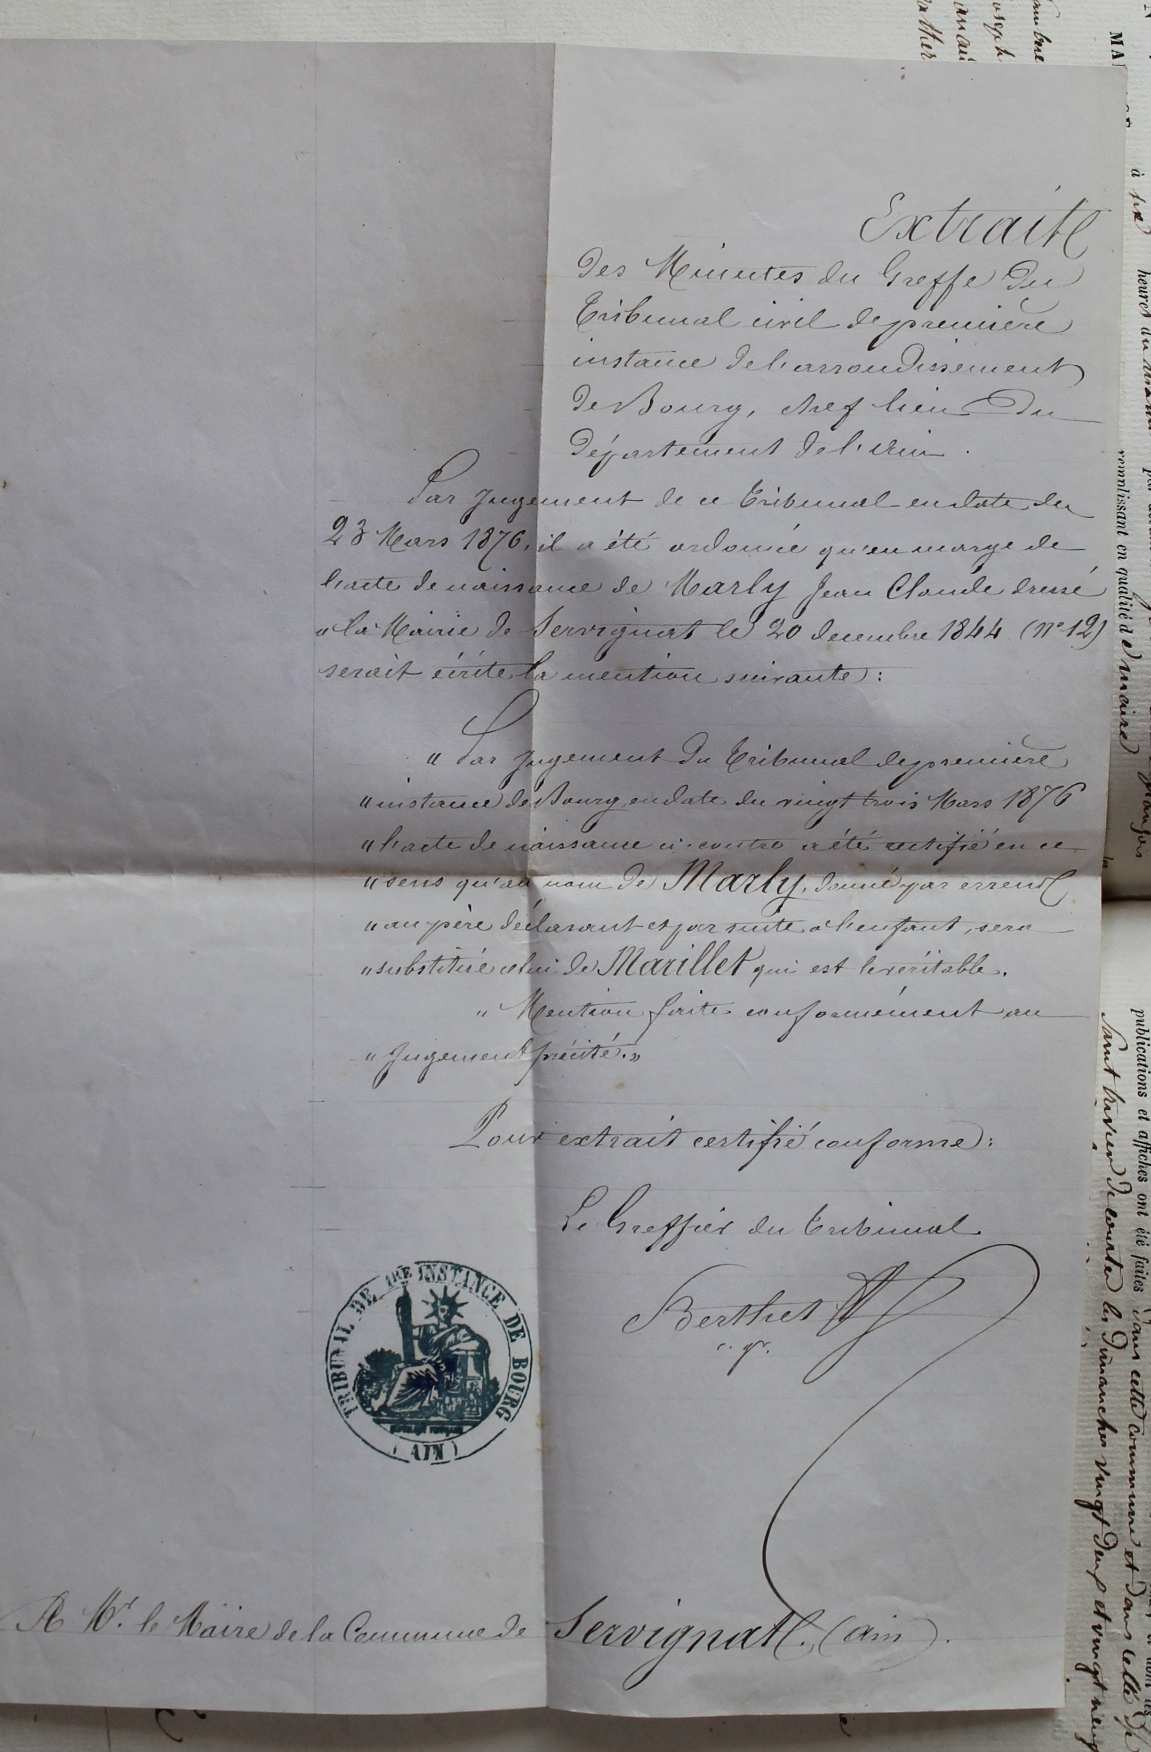 Extrait
des Minutes du Greffe du
Tribunal civil de première
instance de l'arrondissement
de Bourg, chef lieu du
département de l'Ain.
Par Jugement de ce Tribunal en date du
23 Mars 1876, il a été ordonné qu'en marge de
l'acte de naissance de Marly Jean Claude dressé
à la Mairie de Servignat le 20 decembre 1844 (n° 12)
serait écrite la mention suivante :
" Par jugement du Tribunal de première
" instance de Bourg en date du vingt trois Mars 1876
" l'acte de naissance ci-contre a été rectifié en ce
" sens qu'au nom de Marly, donné par erreur
" au père déclarant et par suite à l'enfant, sera
" substitué celui de Marillet qui est le véritable.
" Mention faite conformément au
" Jugement précité. "
Pour extrait certifié conforme :
Le Greffier du Tribunal
Berthet
c. gr.
TRIBUNAL DE 1RE INSTANCE DE BOURG
( AIN )
A Mr. le Maire de la Commune de Servignat. (Ain).
à six heures du
remplissant en qualité de maire
publications et affiches ont été faites dans cette commune et dans celle de
Saint trivier de courtes les Dimanches vingt deux et vingt neuf